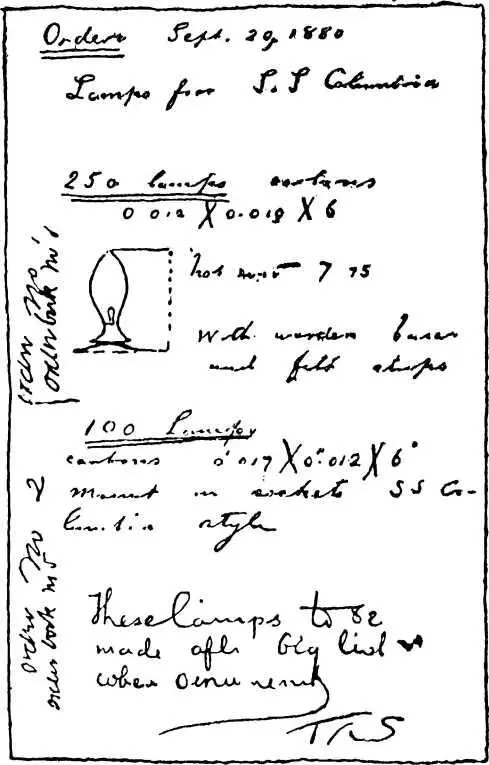 Orders Sept. 29, 1880
Lamps for S.S Columbia
250 lamps carbons
0 012 X 0.019 X 6
not over 7 75
With wooden bases
and felt straps
100 Lamps
carbons 0 017 X 0".012 X 6"
Mount in sockets SS Co-
lumbia style
These lamps to be
made after big list
when
order No 1
order book No 5
order No 2
order book No 5